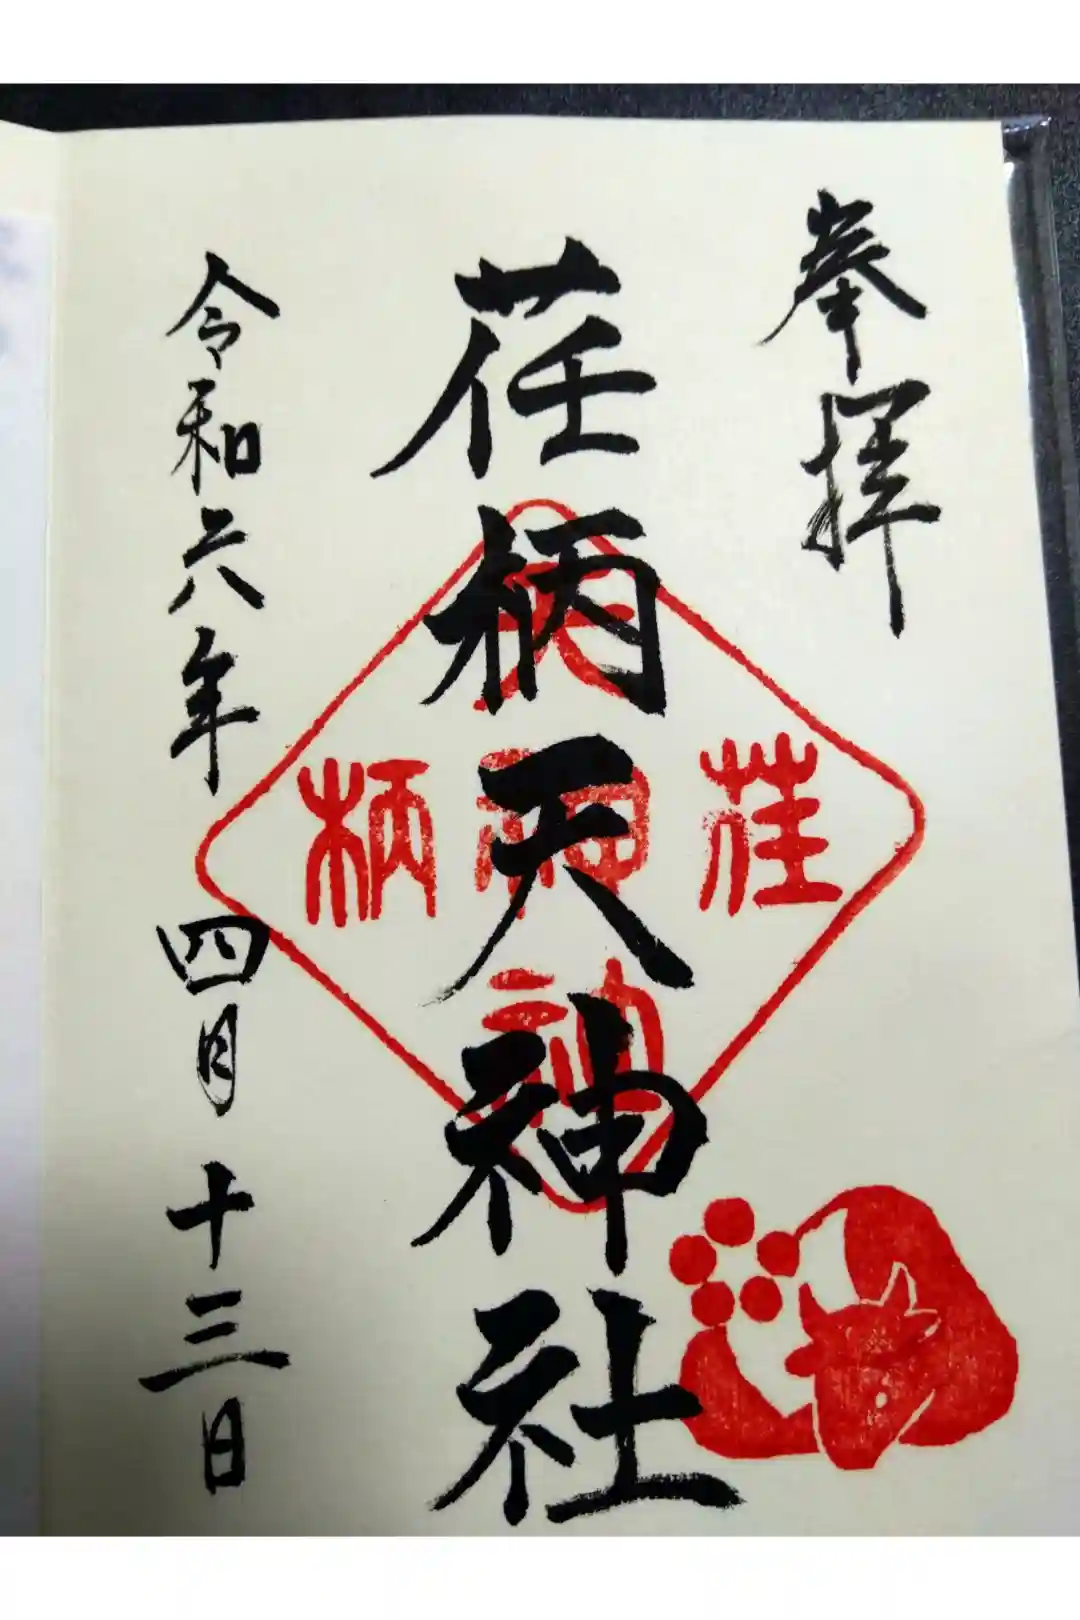 奉拝
荏柄天神社
令和六年 四月十三日
荏
柄